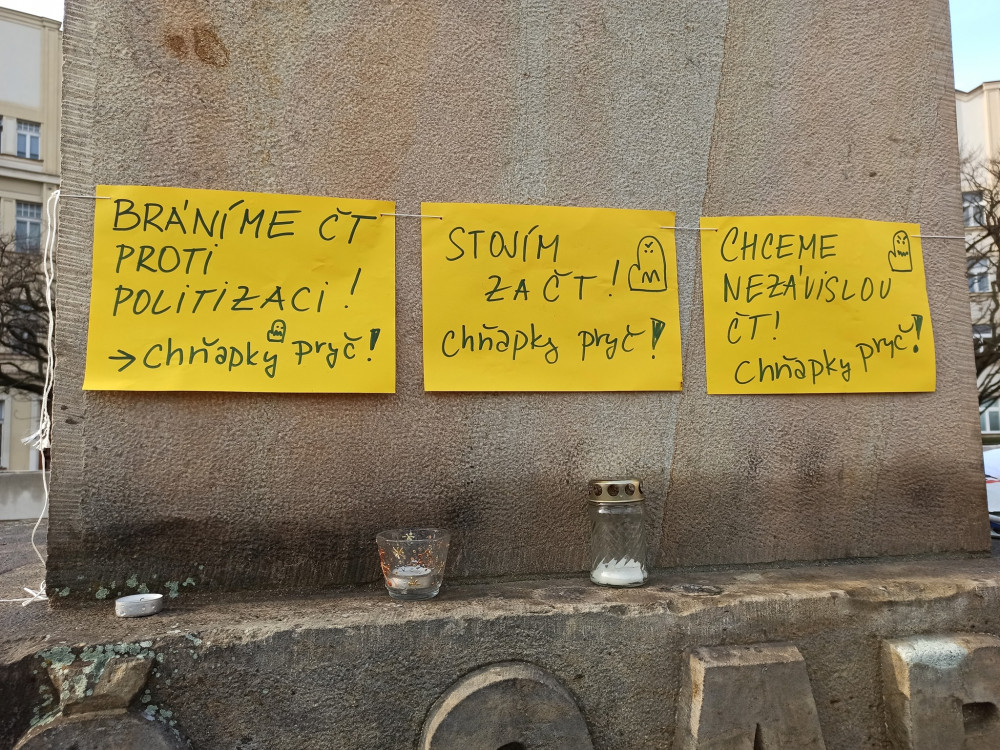 BRÁNÍME ČT
PROTI
POLITIZACI!
→ Chňapky pryč!
STOJÍM
ZA ČT!
Chňapky pryč!
CHCEME
NEZÁVISLOU
ČT!
Chňapky pryč!